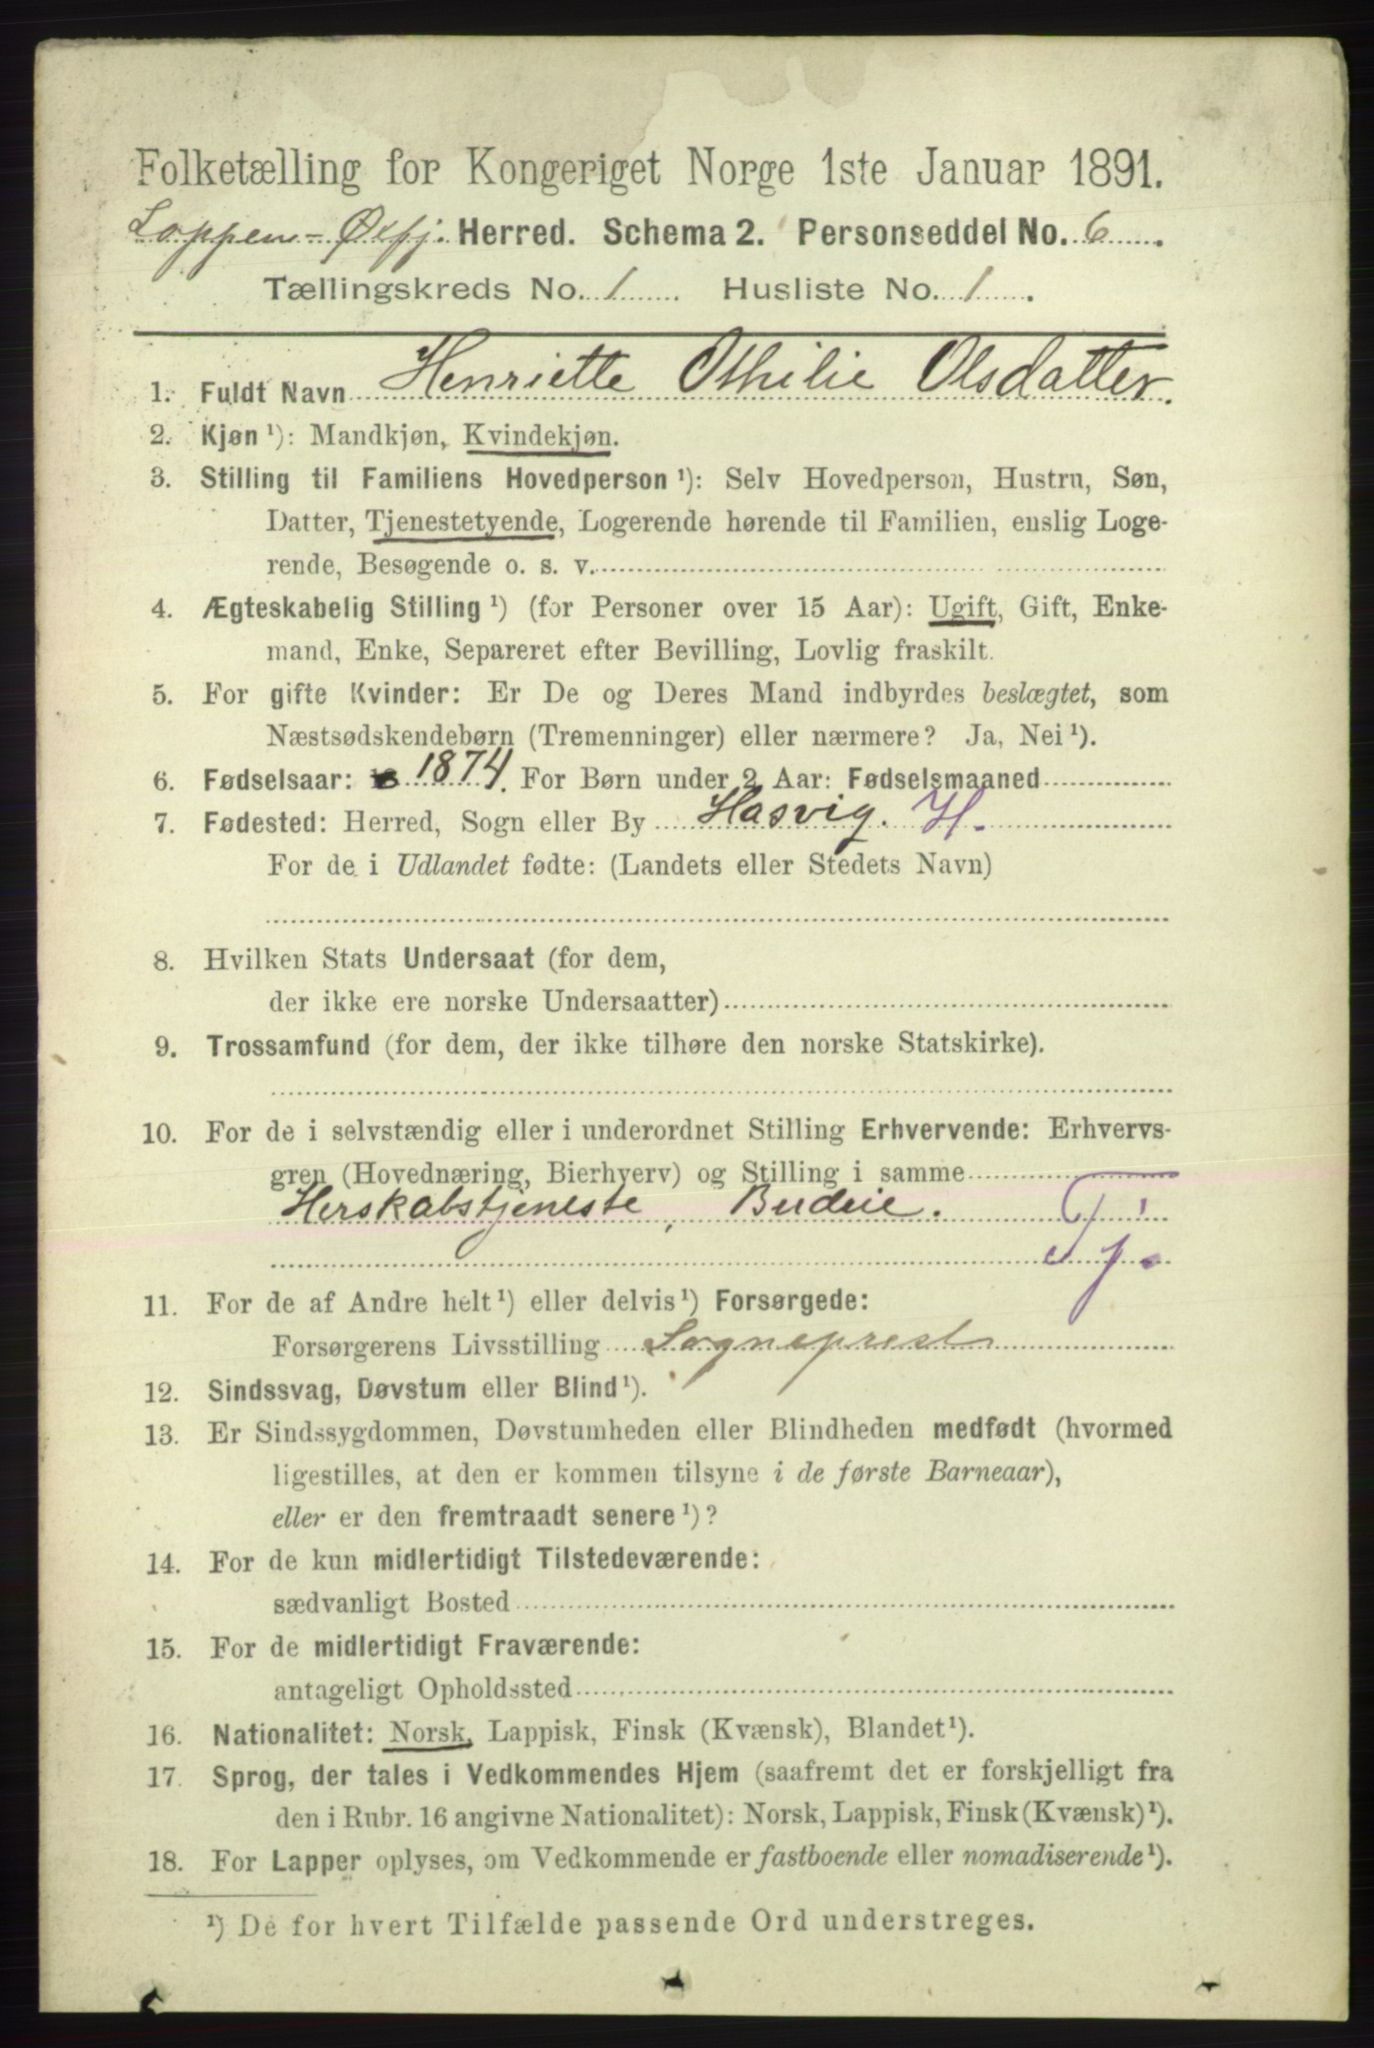 Folketælling for Kongeriget Norge 1ste Januar 1891.
Loppen-Øxfj. Herred. Schema 2. Personseddel No. 6
Tællingskreds No. 1 Husliste No. 1
1. Fuldt Navn Henriette Othilie Olsdatter.
2. Kjøn ¹): Mandkjøn, Kvindekjøn.
3. Stilling til Familiens Hovedperson ¹): Selv Hovedperson, Hustru, Søn,
Datter, Tjenestetyende, Logerende hørende til Familien, enslig Loge-
rende, Besøgende o. s. v.
4. Ægteskabelig Stilling ¹) (for Personer over 15 Aar): Ugift, Gift, Enke-
mand, Enke, Separeret efter Bevilling, Lovlig fraskilt.
5. For gifte Kvinder: Er De og Deres Mand indbyrdes beslægtet, som
Næstsødskendebørn (Tremenninger) eller nærmere? Ja, Nei ¹).
6. Fødselsaar: 1874. For Børn under 2 Aar: Fødselsmaaned
7. Fødested: Herred, Sogn eller By Hasvig. H.
For de i Udlandet fødte: (Landets eller Stedets Navn)
8. Hvilken Stats Undersaat (for dem,
der ikke ere norske Undersaatter)
9. Trossamfund (for dem, der ikke tilhøre den norske Statskirke).
10. For de i selvstændig eller i underordnet Stilling Erhvervende: Erhvervs-
gren (Hovednæring, Bierhverv) og Stilling i samme
Herskabstjeneste, Budeie. Tj.
11. For de af Andre helt ¹) eller delvis ¹) Forsørgede:
Forsørgerens Livsstilling Sogneprest
12. Sindssvag, Døvstum eller Blind ¹).
13. Er Sindssygdommen, Døvstumheden eller Blindheden medfødt (hvormed
ligestilles, at den er kommen tilsyne i de første Barneaar),
eller er den fremtraadt senere ¹)?
14. For de kun midlertidigt Tilstedeværende:
sædvanligt Bosted
15. For de midlertidigt Fraværende:
antageligt Opholdssted
16. Nationalitet: Norsk, Lappisk, Finsk (Kvænsk), Blandet ¹).
17. Sprog, der tales i Vedkommendes Hjem (saafremt det er forskjelligt fra
den i Rubr. 16 angivne Nationalitet): Norsk, Lappisk, Finsk (Kvænsk) ¹).
18. For Lapper oplyses, om Vedkommende er fastboende eller nomadiserende ¹).
¹) De for hvert Tilfælde passende Ord understreges.